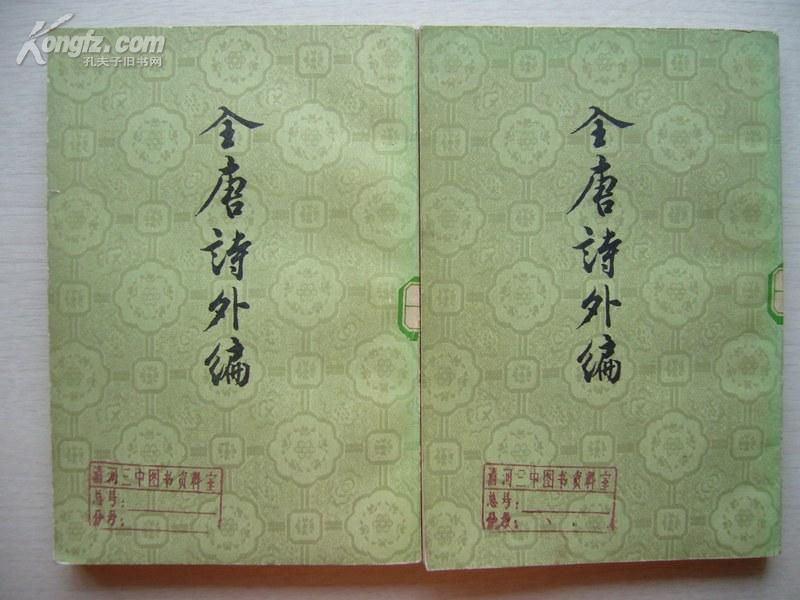 Kongfz.com
孔夫子旧书网
全唐詩外編
二中图书资料室
总号：
分号：
全唐詩外編
二中图书资料室
总号：
分号：